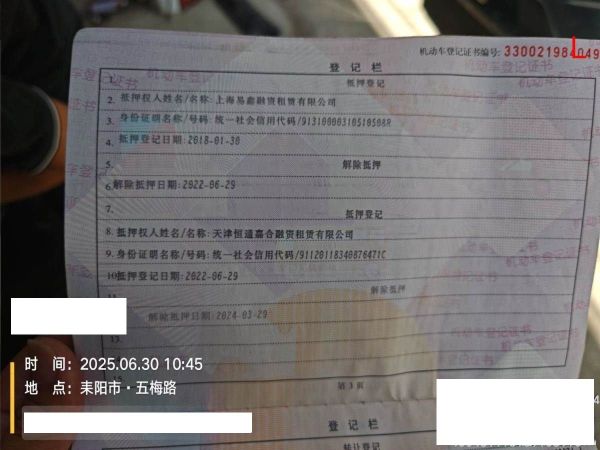 机动车登记证书编号: 330021984049
登记栏
1. 抵押登记
2. 抵押权人姓名/名称:上海易鑫融资租赁有限公司
3. 身份证明名称/号码:统一社会信用代码/91310000310510508R
4. 抵押登记日期:2018-01-30
5. 解除抵押
6. 解除抵押日期:2022-06-29
7. 抵押登记
8. 抵押权人姓名/名称:天津恒通嘉合融资租赁有限公司
9. 身份证明名称/号码:统一社会信用代码/91120118340876471C
10. 抵押登记日期:2022-06-29
11. 解除抵押
解除抵押日期:2024-03-29
13.
第3页
登记栏
转让登记
时 间: 2025.06.30 10:45
地 点: 耒阳市·五梅路